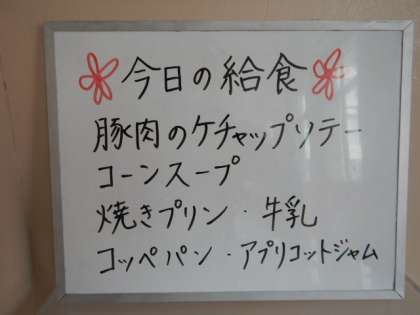 今日の給食
豚肉のケチャップソテー
コーンスープ
焼きプリン・牛乳
コッペパン・アプリコットジャム